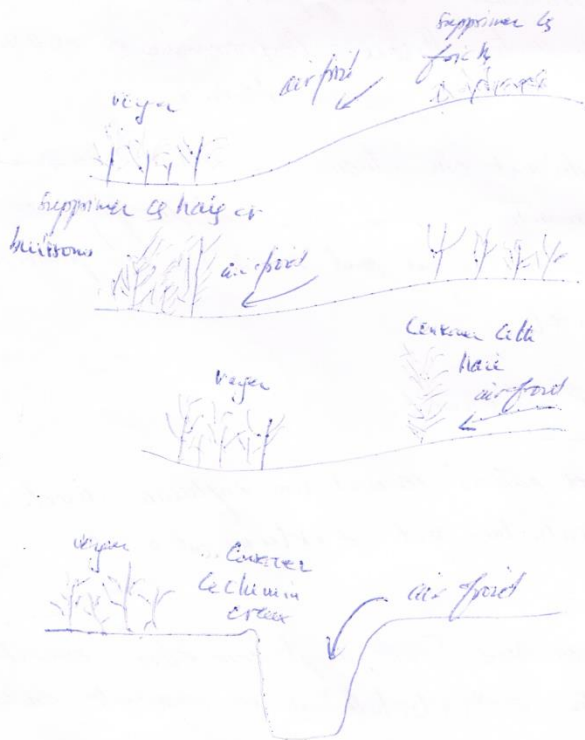 Supprimer les
friches
air froid
verger
Supprimer les haies et
buissons
air froid
Conserver cette
haie
verger
air froid
verger
Conserver
le chemin
creux
air froid